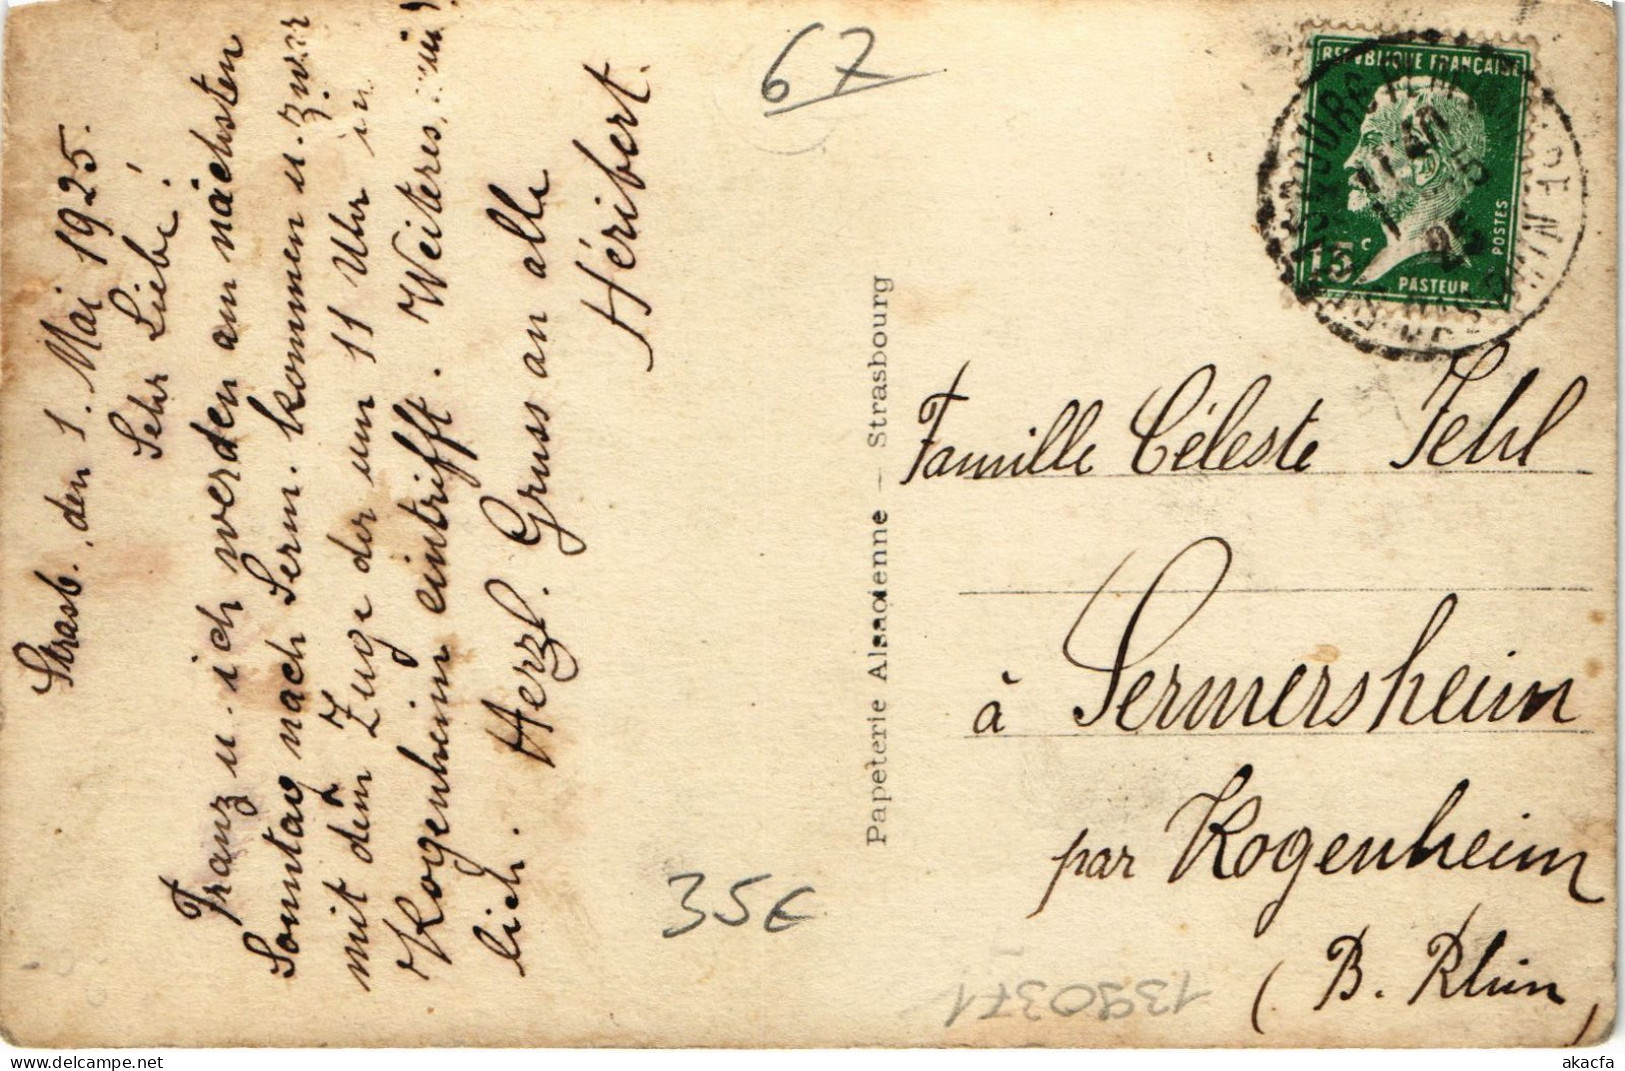 Strasb. den 1. Mai 1925.
Sehr Liebe!
Franz u. ich werden am nächsten
Sonntag nach Serm. kommen u. zwar
mit dem Zuge der um 11 Uhr in
Kogenheim eintrifft. Weiteres
lich. Herzl. Gruss an alle
Héribert.
67
35€
13990371
Papeterie Alsacienne — Strasbourg
REPUBLIQUE FRANÇAISE
15c
POSTES
PASTEUR
Famille Céleste Jehl
à Sermersheim
par Kogenheim
(B. Rhin)
akacfa